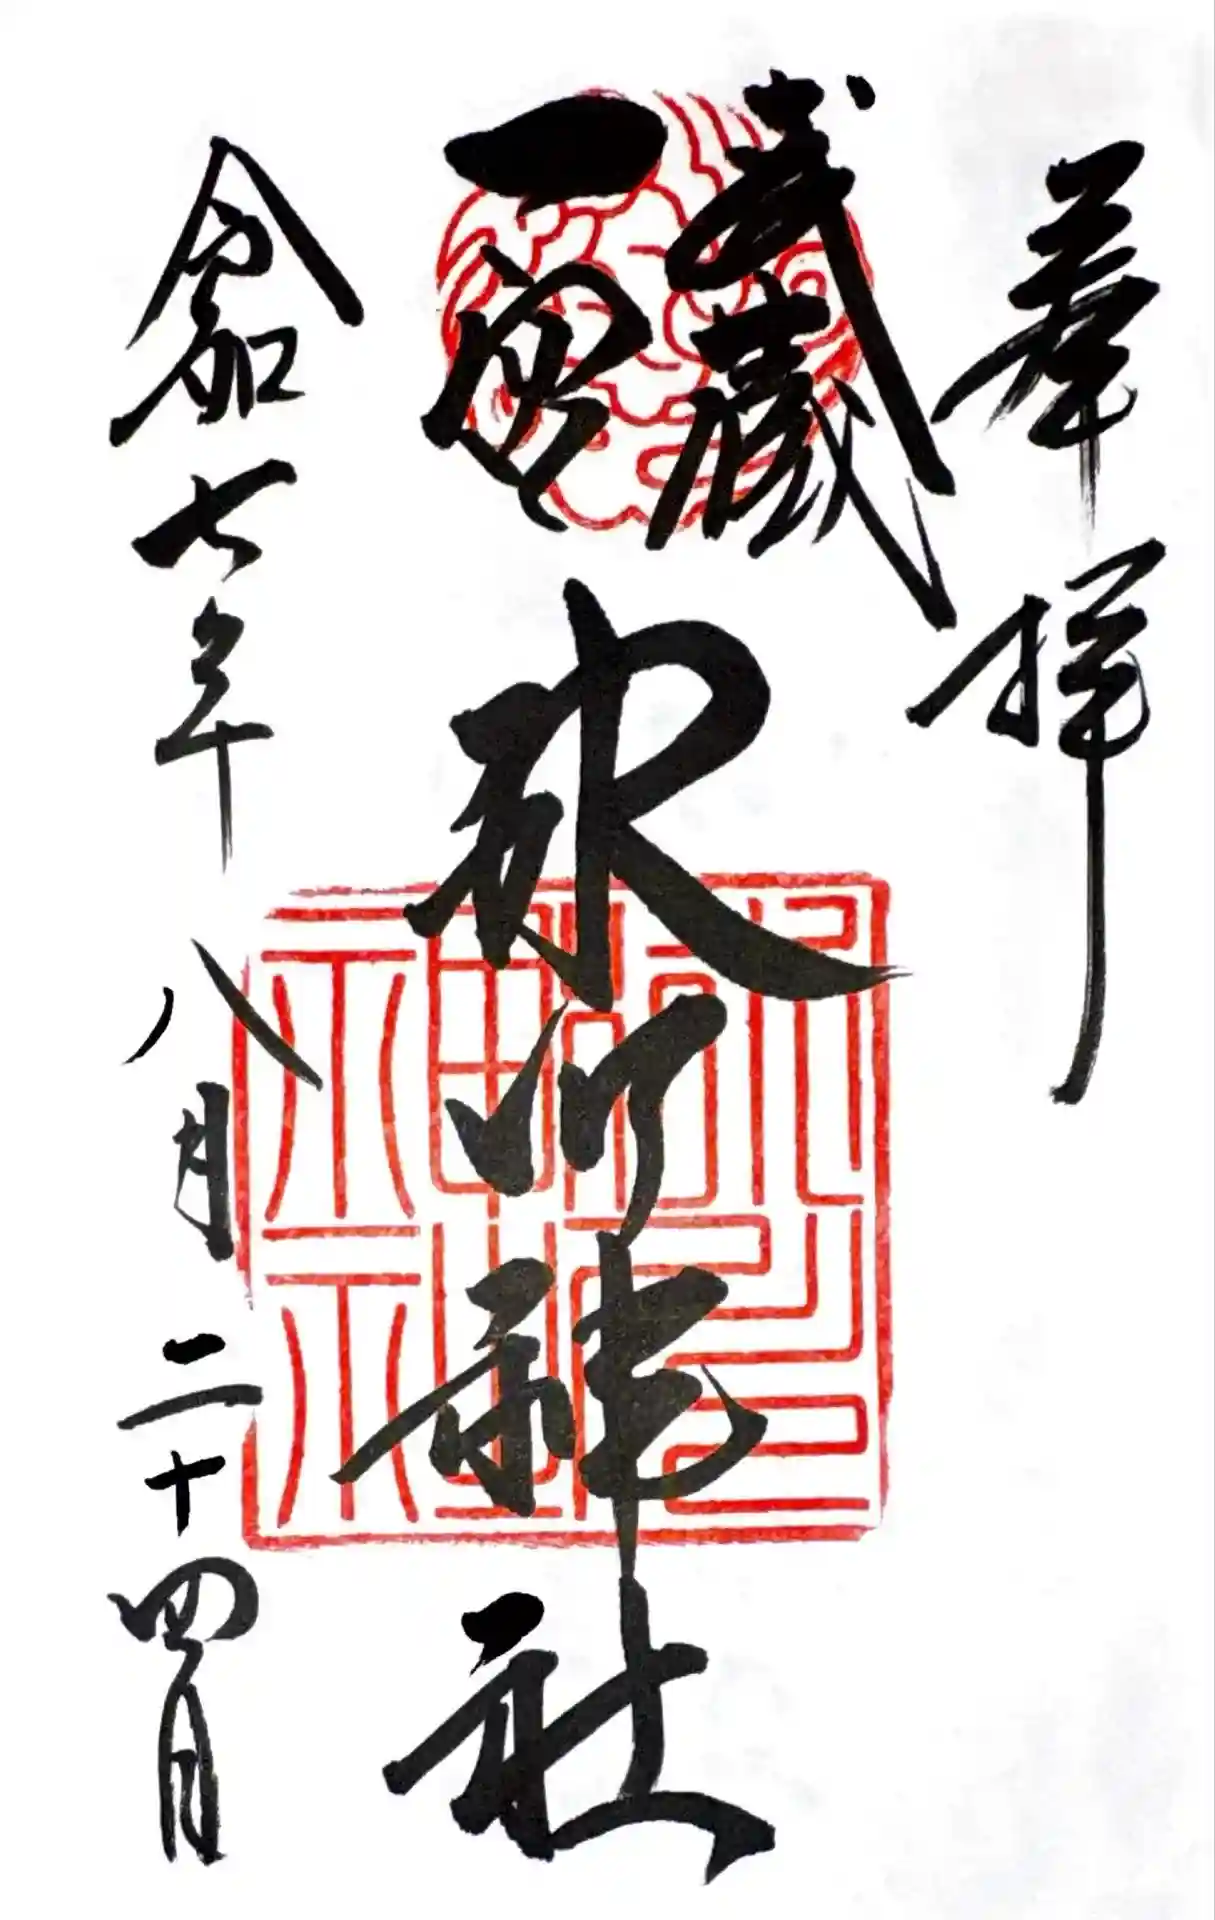 奉拝
武蔵
一宮
氷川神社
令和七年八月二十四日